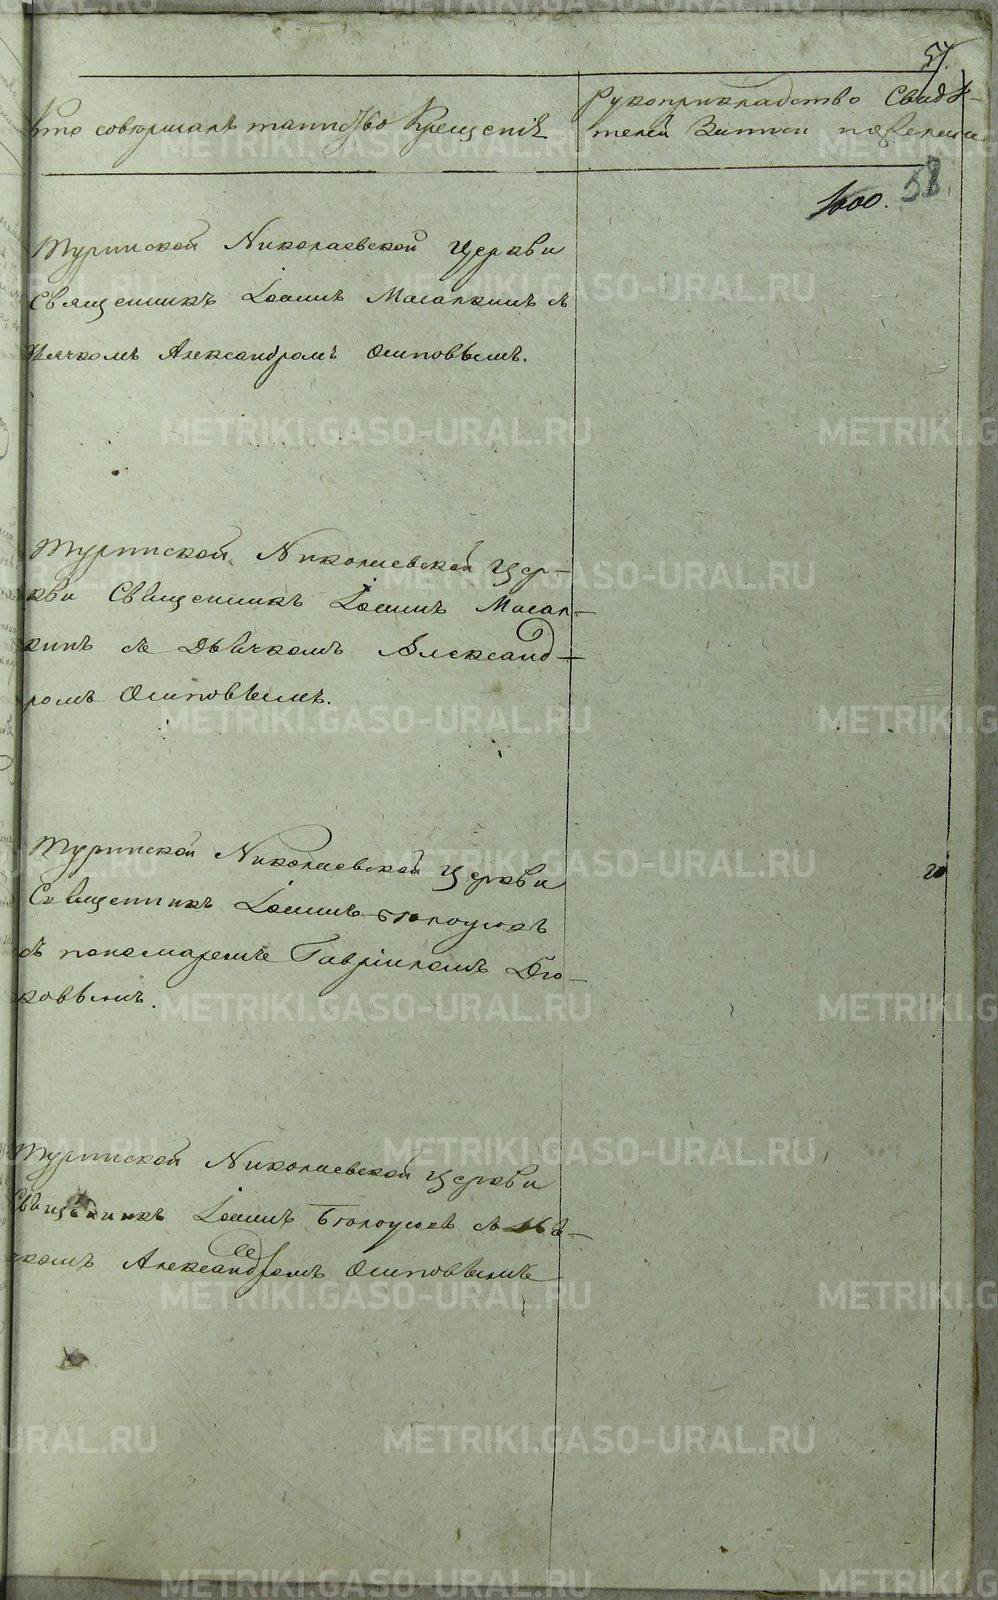 57.
Кто совершалъ таинство Крещенія
Рукоприкладство Свидѣ-
телей Записи по желанію
1000. 58
Туринской Николаевской Церкви
Священникъ Іоаннъ Масалкинъ съ
Дьячкомъ Александромъ Осиповымъ.
Туринской Николаевской Цер-
кви Священникъ Іоаннъ Масал-
кинъ съ Дьячкомъ Александ-
ромъ Осиповымъ.
Туринской Николаевской Церкви
Священникъ Іоаннъ Бѣлоусовъ
съ пономаремъ Гавріиломъ
ковымъ.
Туринской Николаевской Церкви
Священникъ Іоаннъ Бѣлоусовъ съ Дья-
чкомъ Александромъ Осиповымъ
METRIKI.GASO-URAL.RU